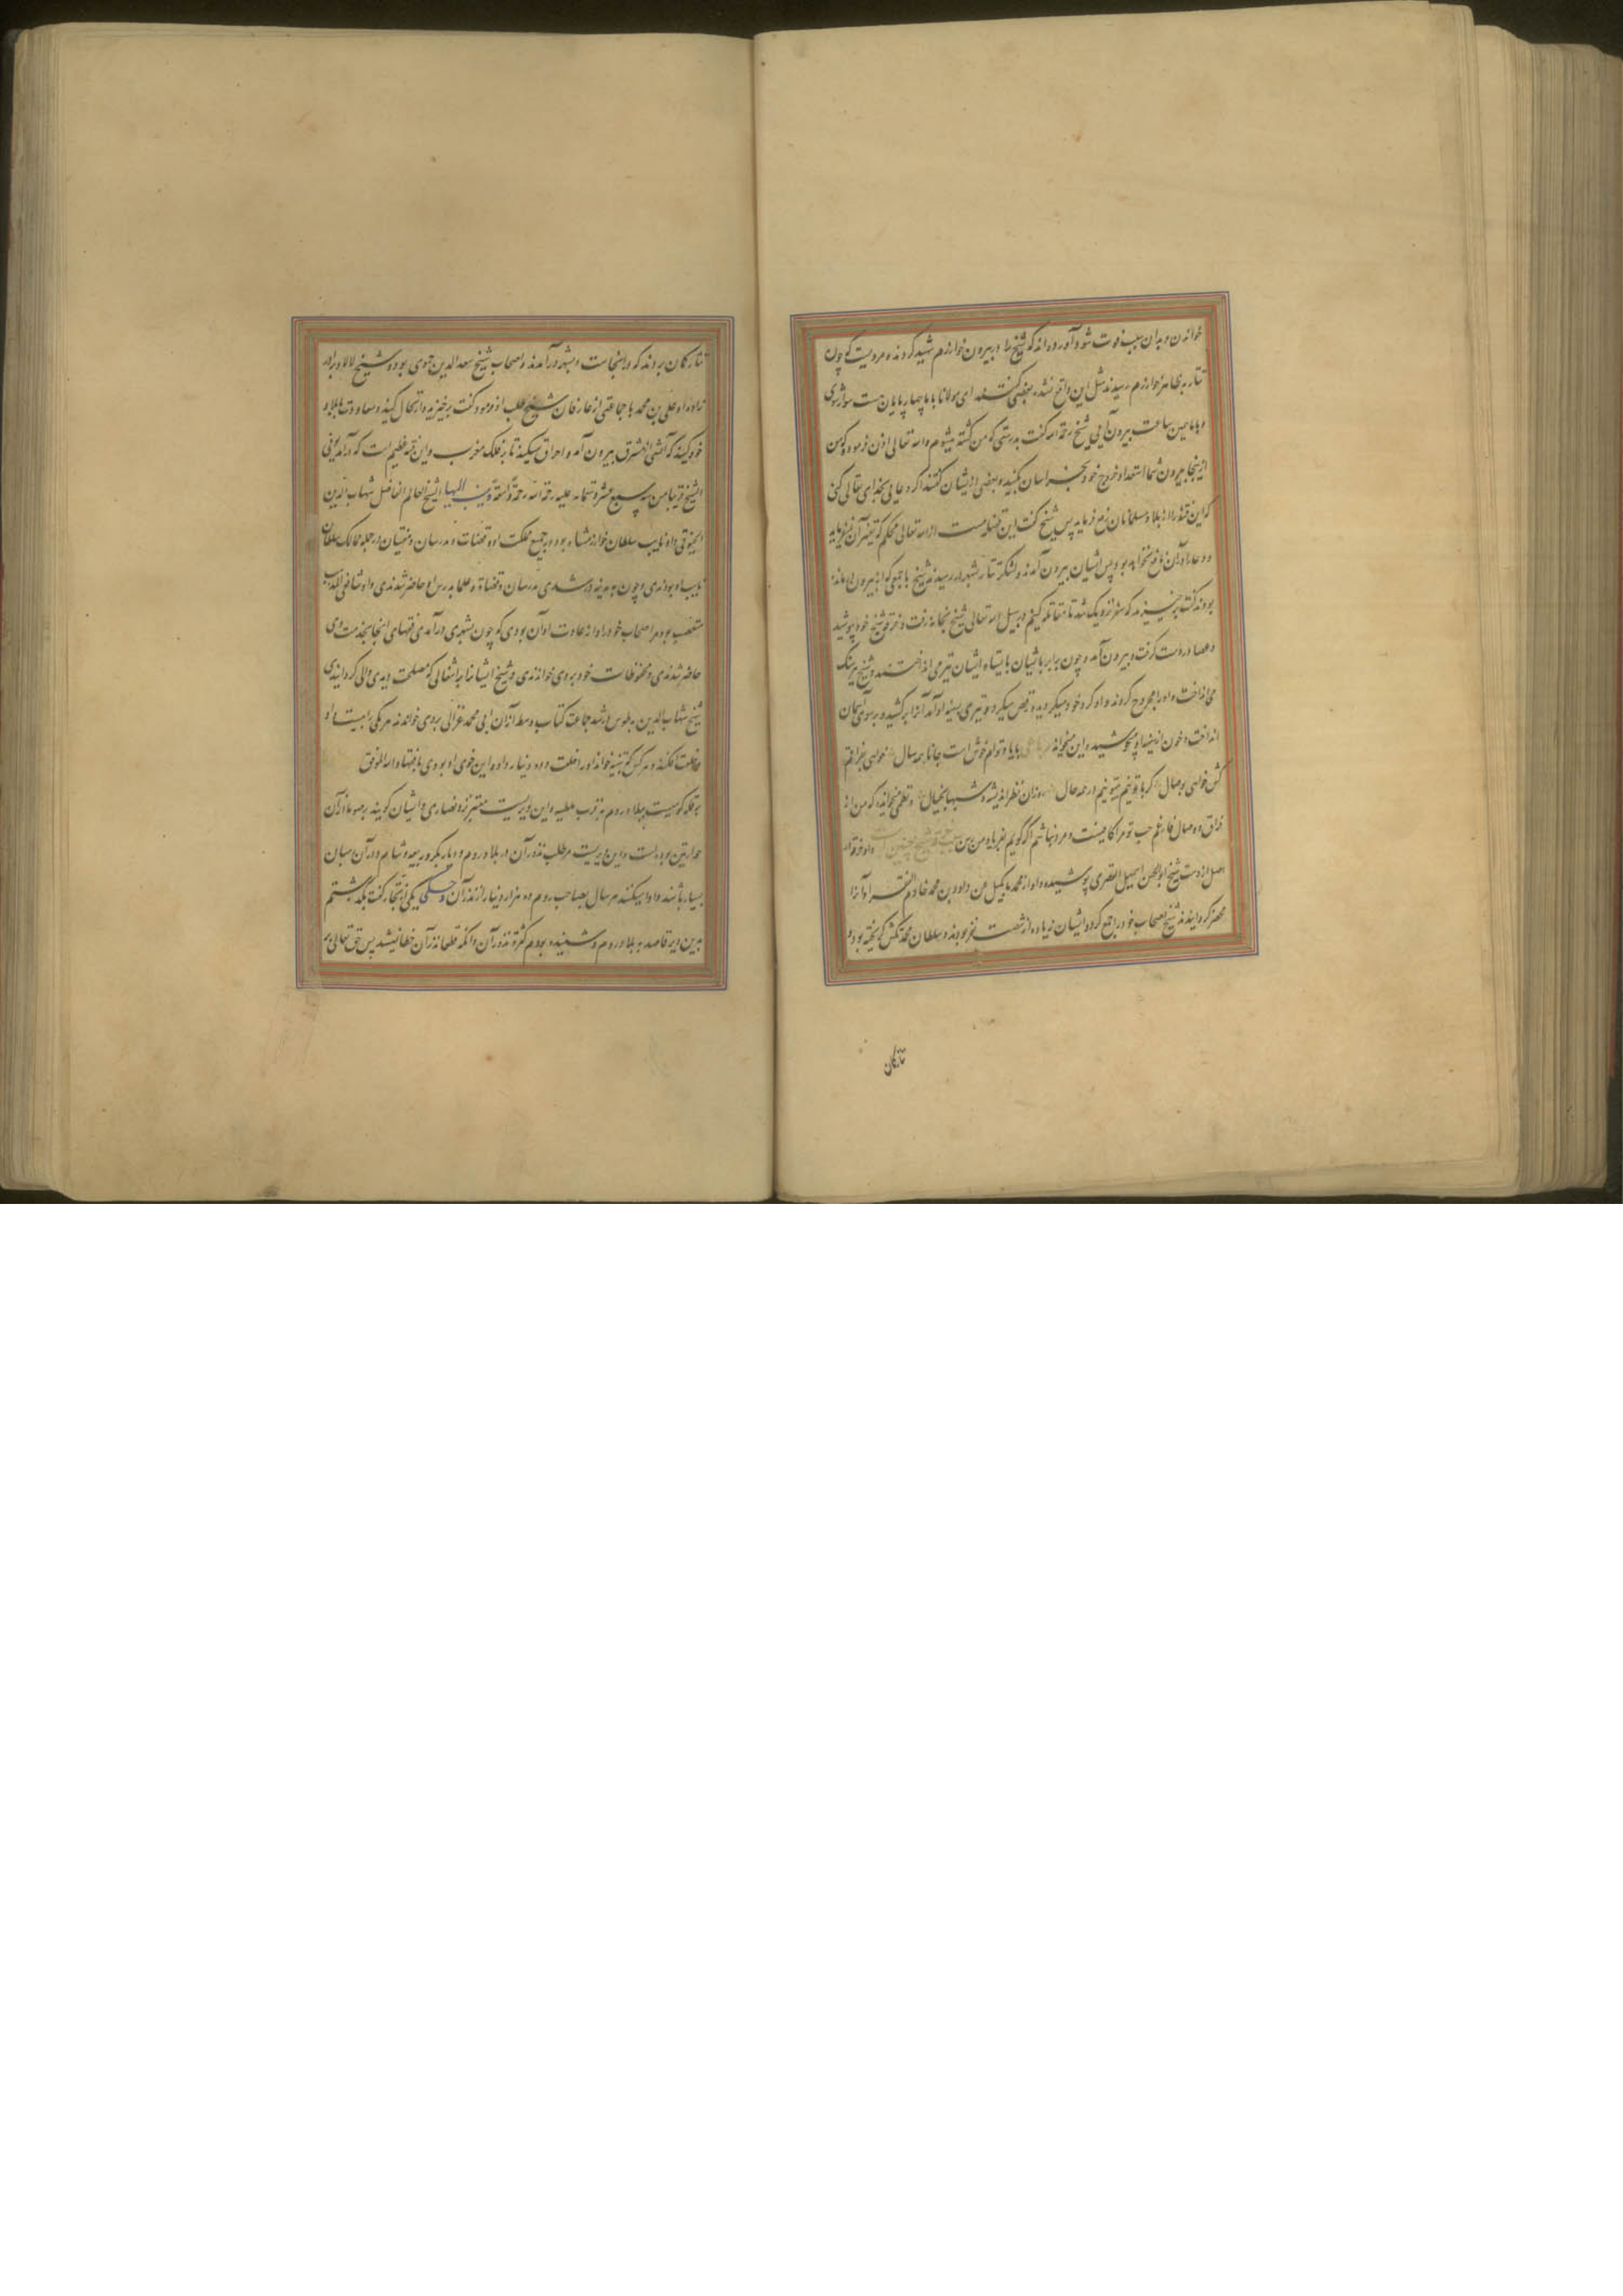 خواندن و بدان سبب فوت شود آورده اند که شیخ را در بیرون خوارزم شهید کردند و مرویست که چون
تتار به ظاهر خوارزم رسیدند مثل این واقع نشده بعضی گفتند ای مولانا با ما چهارپایان هست سوار شوی
و با ما همین ساعت بیرون آیی شیخ رحمه الله گفت بدرستی که من کشته میشوم و الله تعالی اذن فرموده که من
ازینجا بیرون شما استعداد خروج خود بخراسان بکنید و بعضی ازیشان گفتند اگر دعایی بخدای تعالی کنی
که این فتنه را از بلاد مسلمانان رفع فرماید پس شیخ گفت این قضاییست از الله تعالی محکم که تغییر آن نفرماید
و دعا در آن نافع نخواهد بود پس ایشان بیرون آمدند و لشکر تتار بشهر در رسیدند شیخ با جمعی که از بیرون او مانده
بودند گفت برخیزید تا مقاتله کنیم در سبیل الله تعالی شیخ بخانه رفت و خرقه شیخ خود پوشید
و عصا در دست گرفت و بیرون آمد و چون برابر باایشان بایستاد ایشان تیر می انداختند و شیخ سنگ
می انداخت و او را مجروح کردند و او گرد خود میگردید و رقص میکرد و تیری بسینه او آمد آنرا برکشید و بر سوی آسمان
انداخت و خون از سینه او بجوشید و این میخواند با یاد توام خوش است جانا همه سال خواهی بفراقم
کش خواهی بوصال گر با تویم در همه حال وزان نظر اندیشه و شبها بخیال و نظمی میخوانده که من از
فراق و وصال فارغم حب تو مرا کافیست و مرد نباشم اگر گویم بفریاد من رس و او خرقه
اصل از دست شیخ ابوالحسن اسمعیل القصری پوشیده و او از محمد مانکیل من داود بن محمد خادم الفقرا و آنرا
محضر گردانیدند شیخ اصحاب خود را جمع کرد و ایشان زیاده از شصت نفر بودند و سلطان محمد تکش گریخته بود و
تتارکان
تتارکان بردند که در اینجاست و بشهر درآمدند و اصحاب شیخ سعد الدین حموی بود و شیخ لالا و برادر
زاده او علی بن محمد با جماعتی از عارفان شیخ طلب ازو نمود گفت برخیزید و ارتحال کنید و معاودت بلاد
خود کنید که آتشی از مشرق بیرون آمد و احراق میکند تا بنزدیک مغرب و این فتنه عظیم است که درآمد توفی
الشیخ قریبا من سنه سبع عشر و ستمایه علیه رحمة الله رحمة واسعة و ینسب الیها الشیخ العالم الفاضل شهاب الدین
الخیوقی و او نایب سلطان خوارزمشاه بود در جمیع مملکت او و قضات و مدرسان و مفتیان در جمله ممالک سلطان
نایب او بودندی و چون بمدینه در شدی مدرسان و قضاة و علما بدرس او حاضر شدندی و او شافعی المذهب
متعصب بود مر اصحاب خود را و از عادت او آن بودی که چون بشهری درآمدی فقهای اینجا بخدمت وی
حاضر شدندی و محفوظات خود بروی خواندندی و شیخ ایشانرا باشغالی که مصلحت دیدی والی گردانیدی
شیخ شهاب الدین بطوس در شد جماعت کتاب وسط از آن ابی محمد غزالی بروی خواندند هر یکی را بیست و او
خلعت افکند و هر کس که تنبیه خواند او را خلعت و ده دینار داد و این خوی او بودی با فقها و الله الموفق
برقله کوهیست ببلاد روم به قرب ملطیه و این دیریست معتبر نزد نصاری و ایشان گویند برصوما از آن
حواریین بوده است و این دیریست مر طلب نذور آن در بلاد روم و دیار بکر و ربیعه و شام و در آن رهبان
بسیار باشند و ادا میکنند هر سال بصاحب روم ده هزار دینار از نذر آن و حکی یکی از تجار گفت بگذشتم
بدین دیر قاصد به بلاد روم و شنیده بودم کثرة نذور آن و آنکه قطعا نذر آن خطا نمیشد پس حق تعالی بر